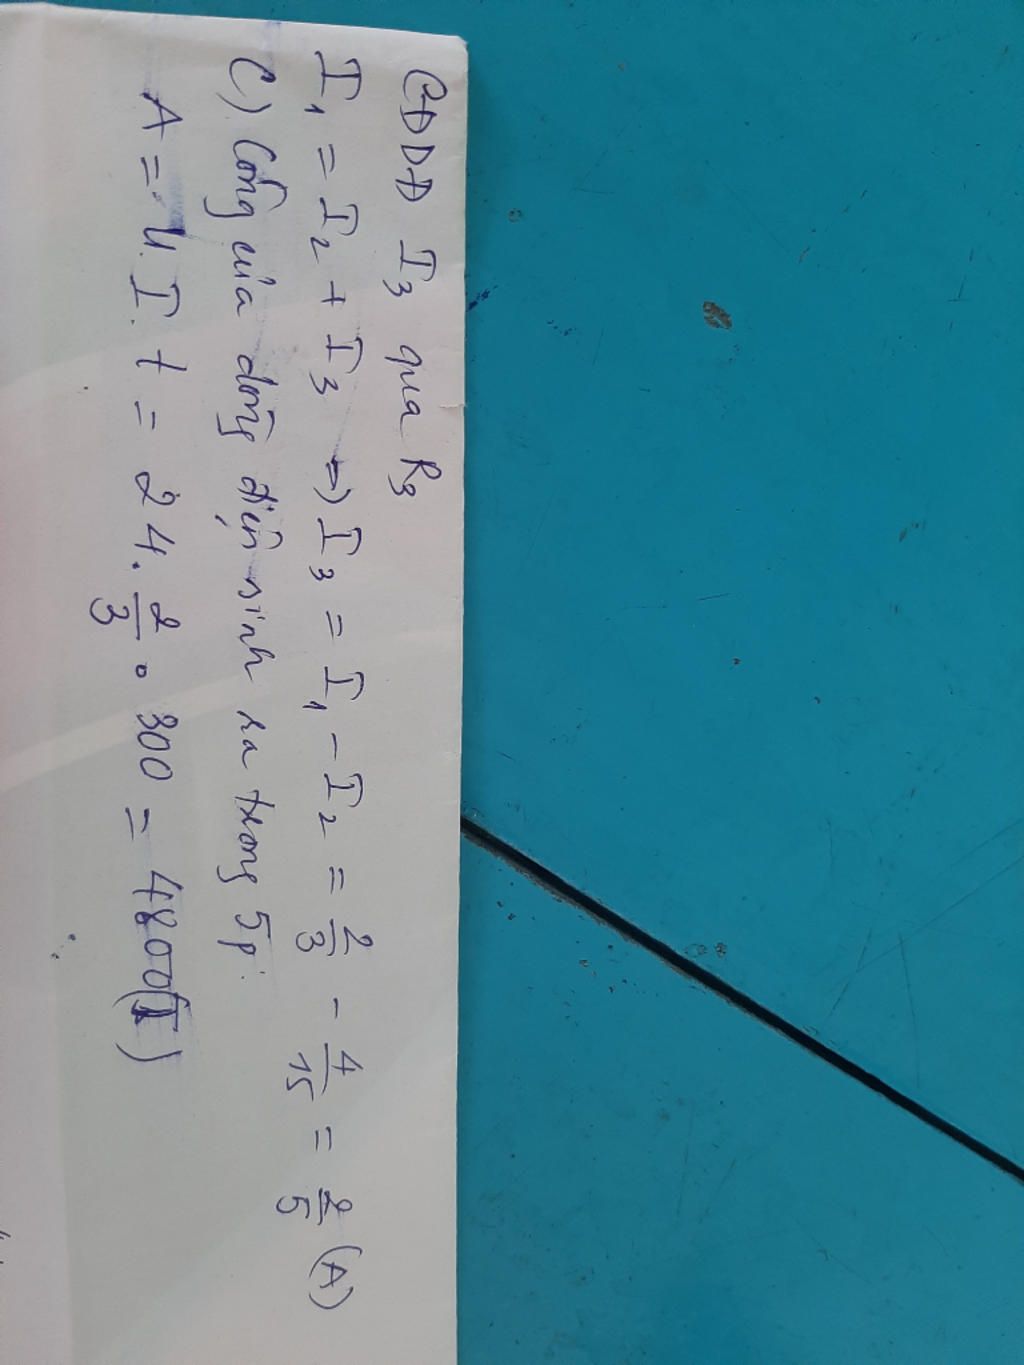 CĐDĐ I₃ qua R₃
I₁ = I₂ + I₃ ⇒ I₃ = I₁ - I₂ = 2/3 - 4/15 = 2/5 (A)
C) Công của dòng điện sinh ra trong 5p:
A = U.I.t = 24. 2/3 . 300 = 4800 (J)